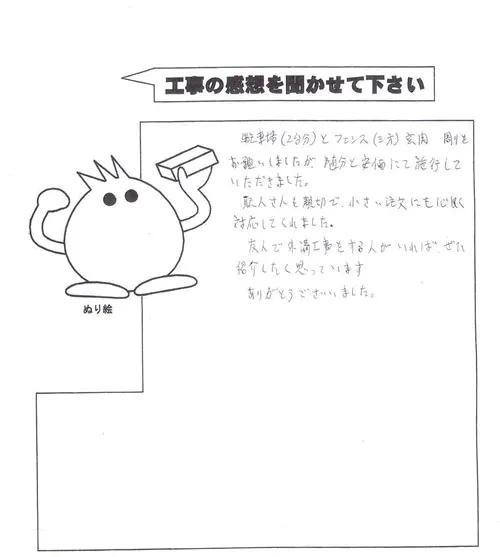 工事の感想を聞かせて下さい
駐車場(2台分)とフェンス(三方)玄関 周りを
お願いしましたが、随分と安価にて施行して
いただきました。
職人さんも親切で、小さい注文にも心良く
対応してくれました。
友人で外溝工事をする人がいれば、ぜひ
紹介したく思っています
ありがとうございました。
ぬり絵